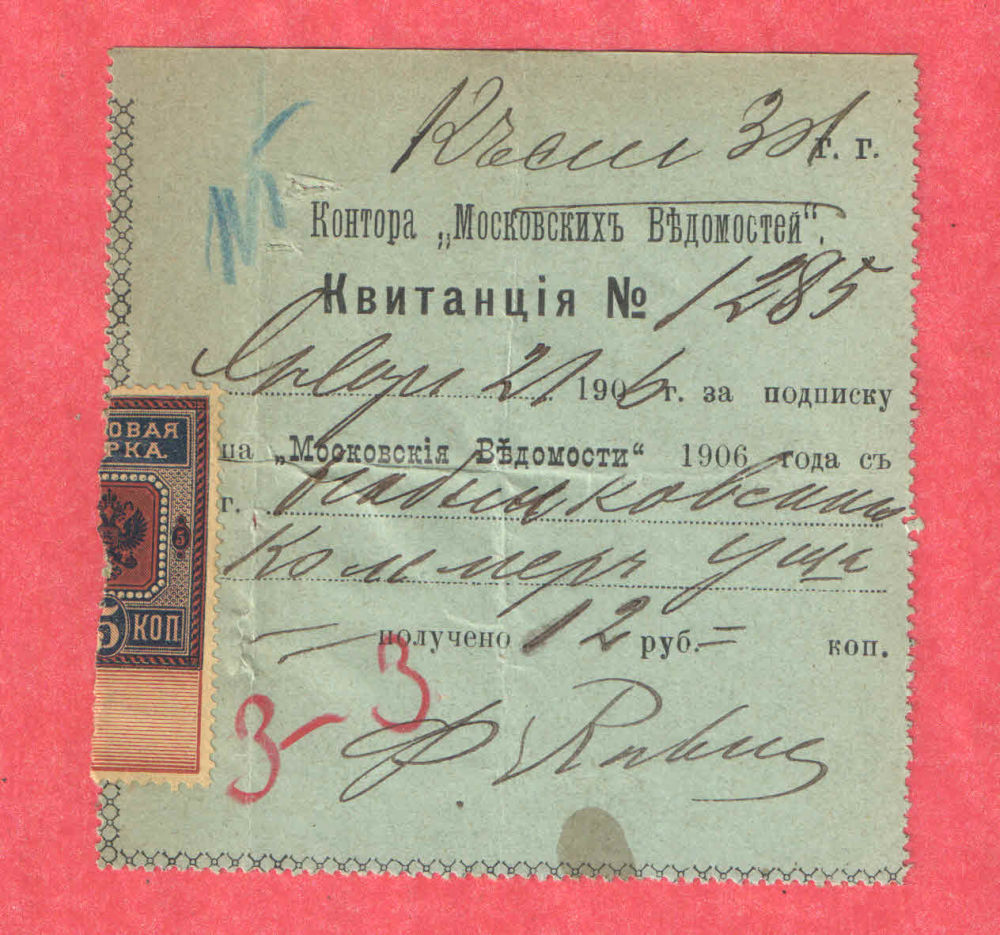 г. г.
№
Контора „Московскихъ Вѣдомостей“.
Квитанція № 1285
Января 21 1906 г. за подписку
на „Московскія Вѣдомости“ 1906 года съ
г.
Коммерч. Уща
получено 12 руб. = коп.
3-3
ОВАЯ
РКА.
5
5 КОП